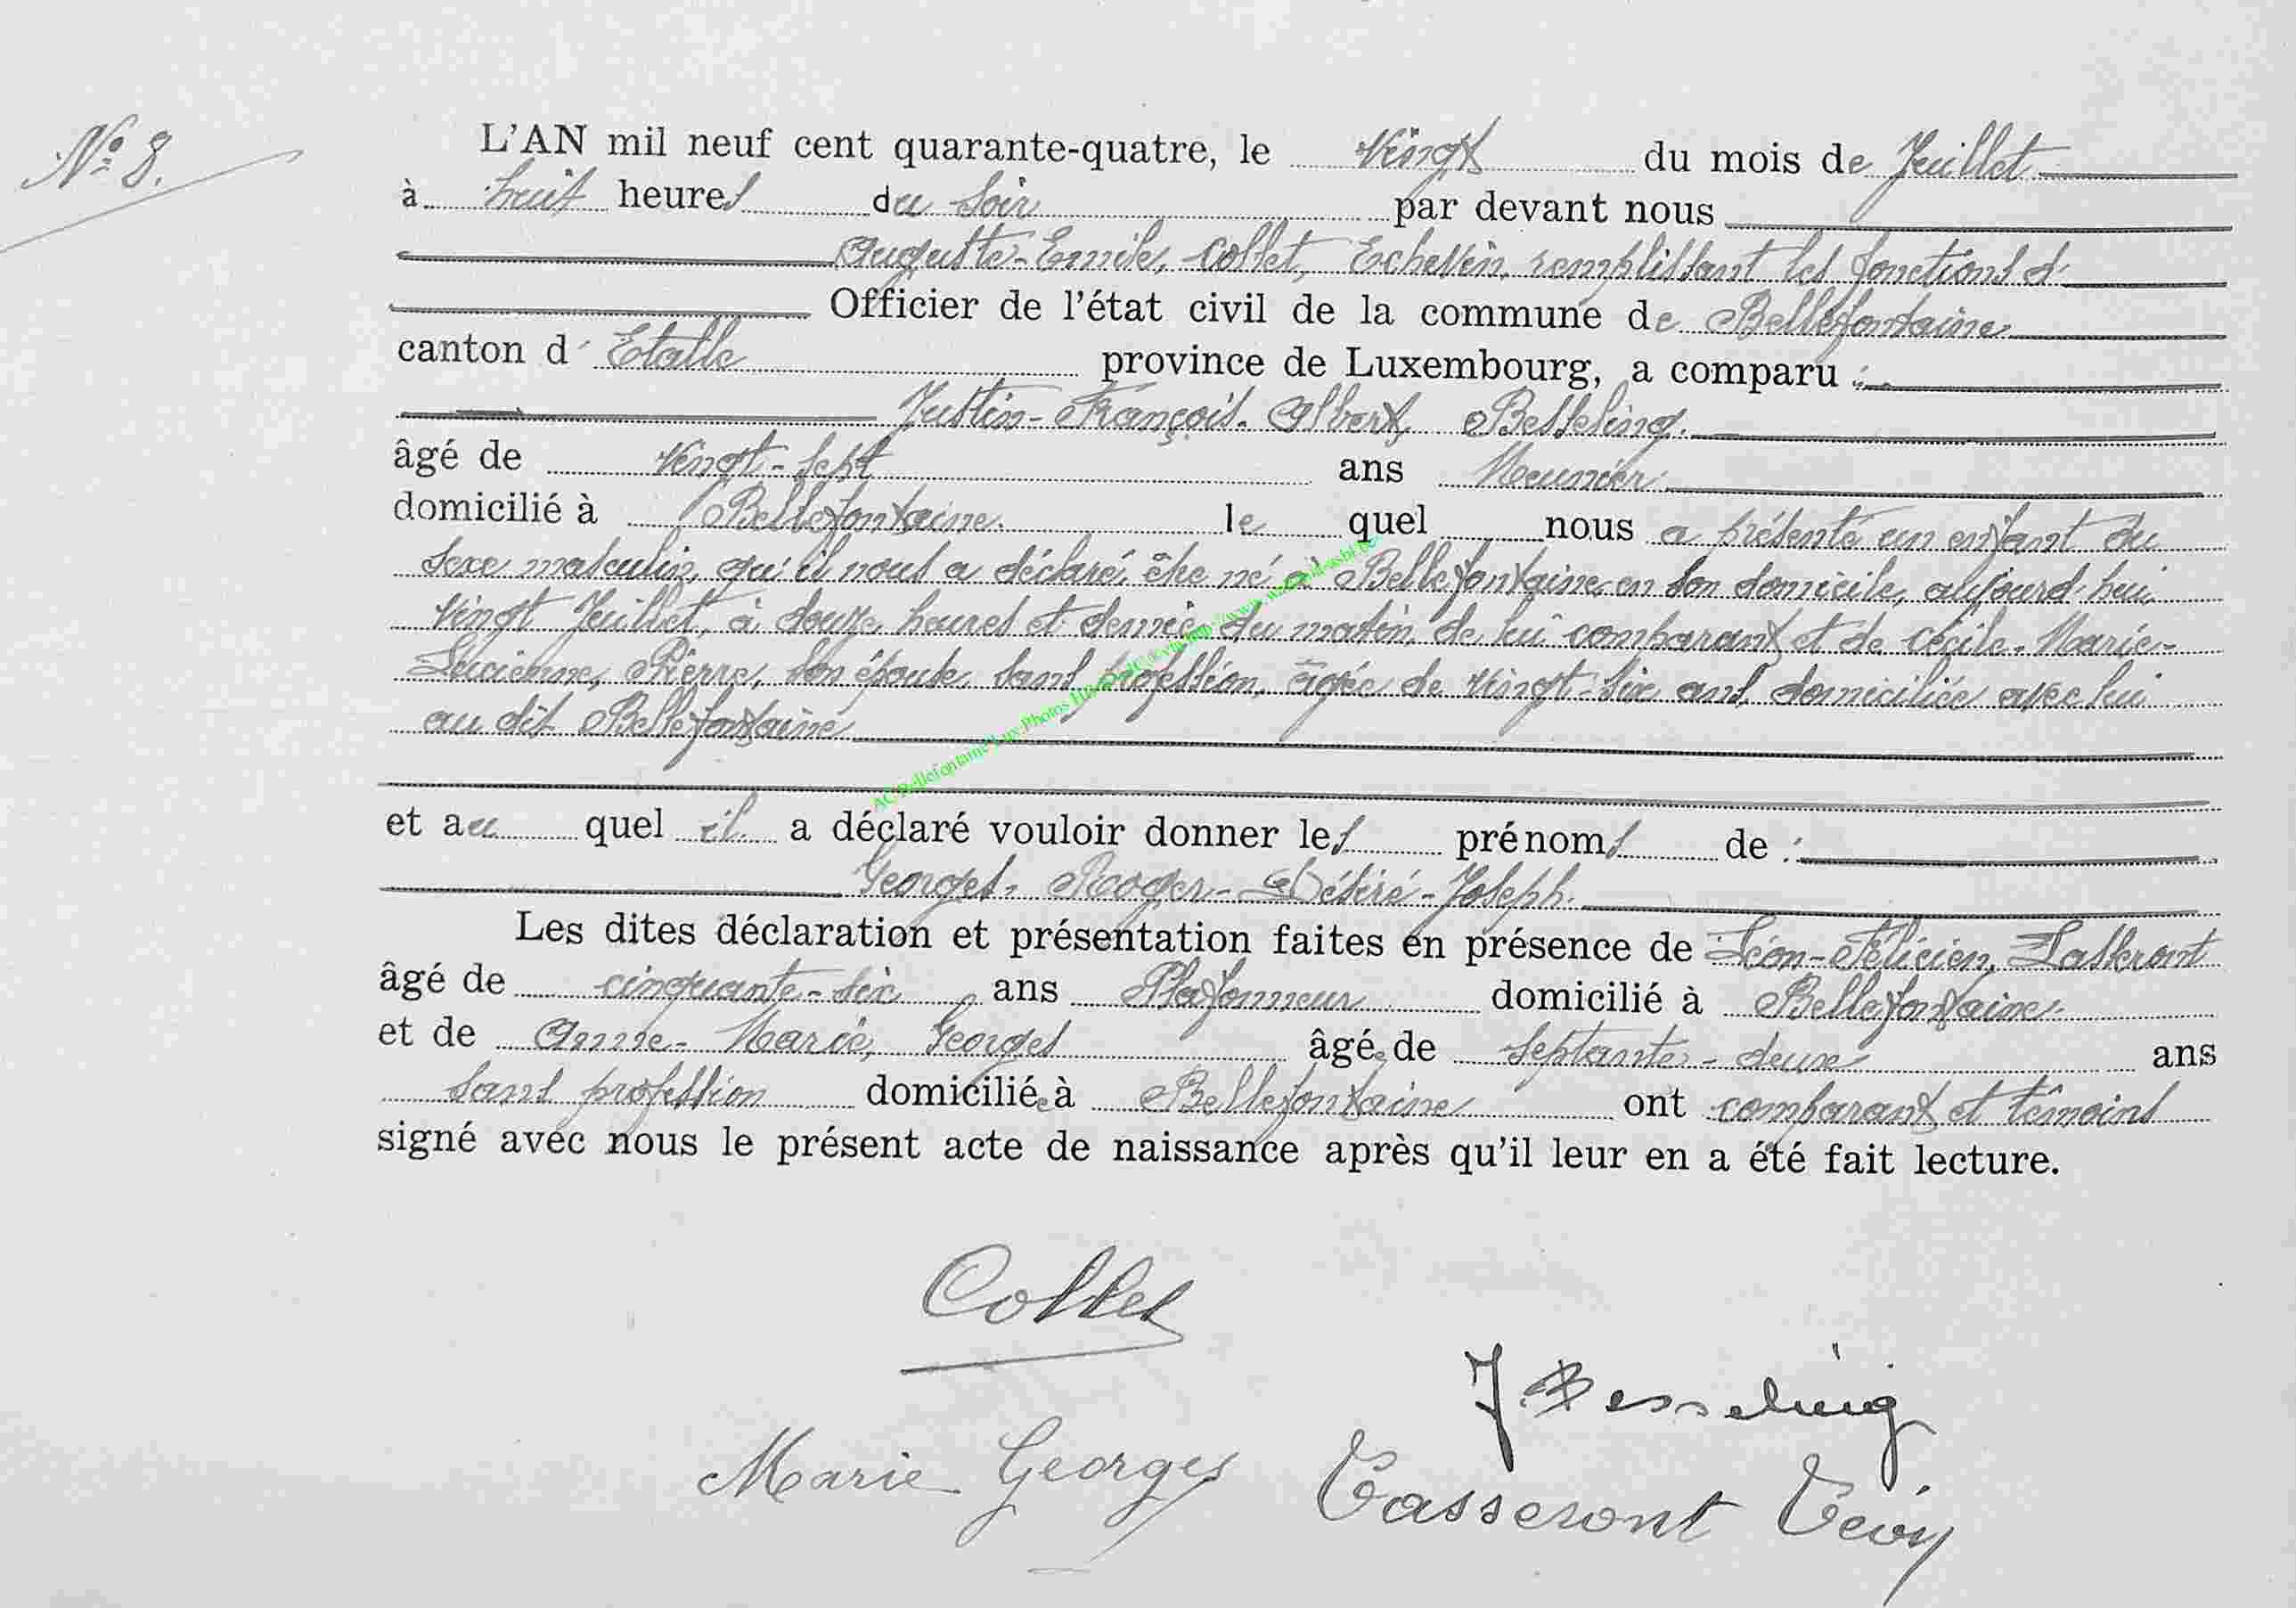 N° 8.
L'AN mil neuf cent quarante-quatre, le Vingt du mois de Juillet
à huit heures du soir par devant nous
Auguste-Emile, Collet, Echevin, remplissant les fonctions d'
Officier de l'état civil de la commune de Bellefontaine
canton d'Etalle province de Luxembourg, a comparu :
Justin-François-Albert, Besseling.
âgé de vingt-sept ans Meunier
domicilié à Bellefontaine. le quel nous a présenté un enfant du
sexe masculin, qu'il nous a déclaré, être né à Bellefontaine, en son domicile, aujourd'hui
vingt Juillet, à douze heures et demie du matin, de lui comparant et de Cécile-Marie-
Lucienne, Pierre, son épouse, sans profession, âgée de vingt-six ans, domiciliée avec lui
au dit Bellefontaine
et au quel il a déclaré vouloir donner les prénoms de :
Georges-Roger-Désiré-Joseph.
Les dites déclaration et présentation faites en présence de Léon-Félicien, Lasseront
âgé de cinquante-six ans Plafonneur domicilié à Bellefontaine
et de Anne-Marie, Georges âgée de septante-deux ans
sans profession domiciliée à Bellefontaine ont comparant et témoins
signé avec nous le présent acte de naissance après qu'il leur en a été fait lecture.
Collet
J Besseling
Marie Georges Lasseront
AC Bellefontaine Lux Photos